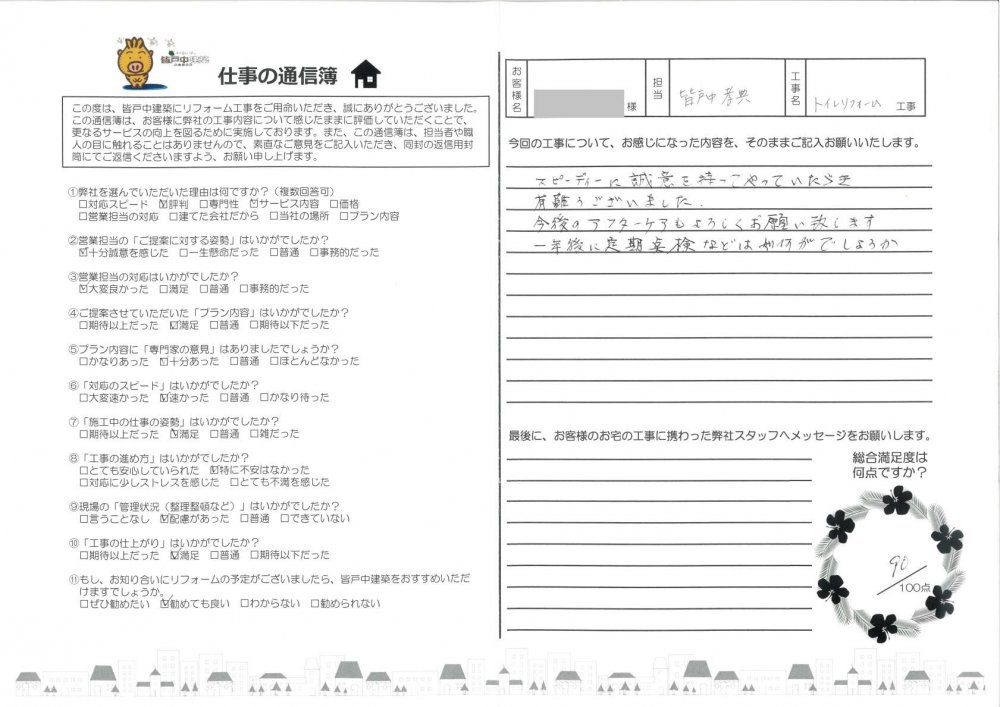 皆戸中建築
仕事の通信簿
この度は、皆戸中建築にリフォーム工事をご用命いただき、誠にありがとうございました。
この通信簿は、お客様に弊社の工事内容について感じたままに評価していただくことで、
更なるサービスの向上を図るために実施しております。また、この通信簿は、担当者や職
人の目に触れることはありませんので、素直なご意見をご記入いただき、同封の返信用封
筒にてご返信くださいますよう、お願い申し上げます。
①弊社を選んでいただいた理由は何ですか？（複数回答可）
□対応スピード ☑評判 □専門性 ☑サービス内容 □価格
□営業担当の対応 □建てた会社だから □当社の場所 □プラン内容
②営業担当の「ご提案に対する姿勢」はいかがでしたか？
☑十分誠意を感じた □一生懸命だった □普通 □事務的だった
③営業担当の対応はいかがでしたか？
☑大変良かった □満足 □普通 □事務的だった
④ご提案させていただいた「プラン内容」はいかがでしたか？
□期待以上だった ☑満足 □普通 □期待以下だった
⑤プラン内容に「専門家の意見」はありましたでしょうか？
□かなりあった ☑十分あった □普通 □ほとんどなかった
⑥「対応のスピード」はいかがでしたか？
□大変速かった ☑速かった □普通 □かなり待った
⑦「施工中の仕事の姿勢」はいかがでしたか？
□期待以上だった ☑満足 □普通 □雑だった
⑧「工事の進め方」はいかがでしたか？
□とても安心していられた ☑特に不安はなかった
□対応に少しストレスを感じた □とても不満を感じた
⑨現場の「管理状況（整理整頓など）」はいかがでしたか？
□言うことなし ☑配慮があった □普通 □できていない
⑩「工事の仕上がり」はいかがでしたか？
□期待以上だった ☑満足 □普通 □期待以下だった
⑪もし、お知り合いにリフォームの予定がございましたら、皆戸中建築をおすすめいただ
けますでしょうか。
□ぜひ勧めたい ☑勧めても良い □わからない □勧められない
お客様名 様 担当 皆戸中 孝典 工事名 トイレリフォーム 工事
今回の工事について、お感じになった内容を、そのままご記入お願いいたします。
スピーディーに誠意を持ってやっていただき
有難うございました.
今後のアフターケアもよろしくお願い致します
一年後に定期点検などは如何がでしょうか
最後に、お客様のお宅の工事に携わった弊社スタッフへメッセージをお願いします。
総合満足度は
何点ですか？
90
100点